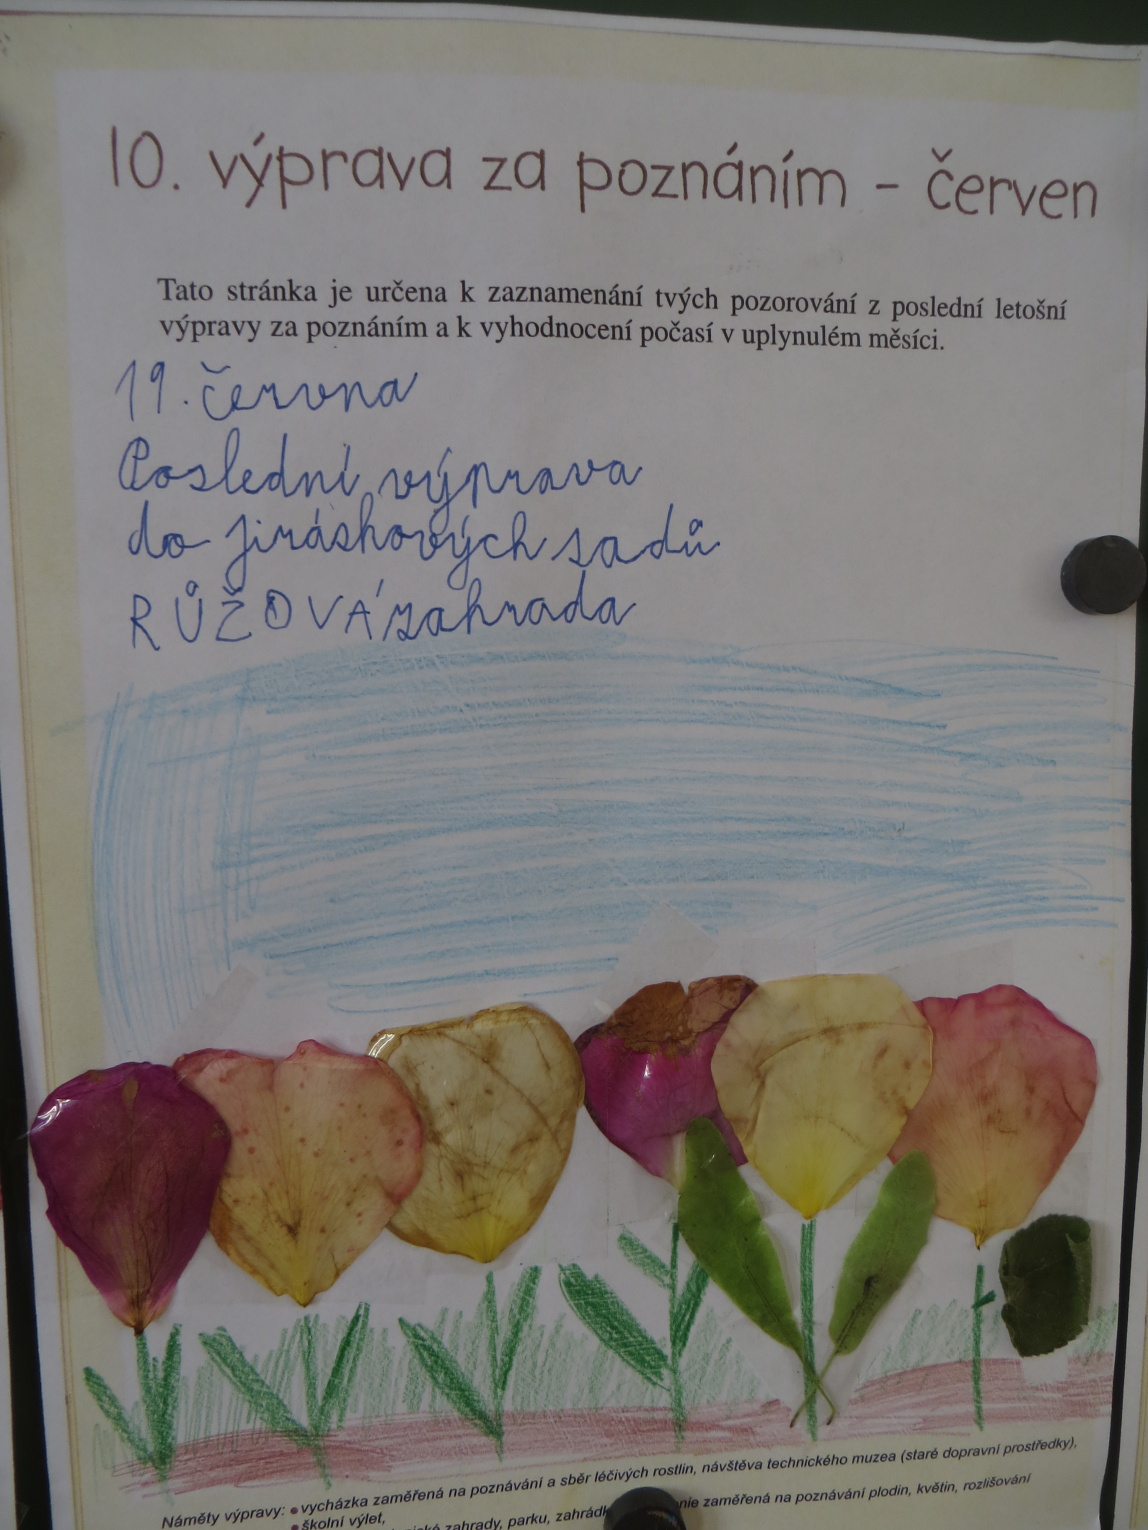 10. výprava za poznáním - červen
Tato stránka je určena k zaznamenání tvých pozorování z poslední letošní
výpravy za poznáním a k vyhodnocení počasí v uplynulém měsíci.
19. června
Poslední výprava
do jiráskových sadů
RŮŽOVÁ zahrada
Náměty výpravy: • vycházka zaměřená na poznávání a sběr léčivých rostlin, návštěva technického muzea (staré dopravní prostředky),
• školní výlet,
zahrady, parku, zaměřená na poznávání plodin, květin, rozlišování